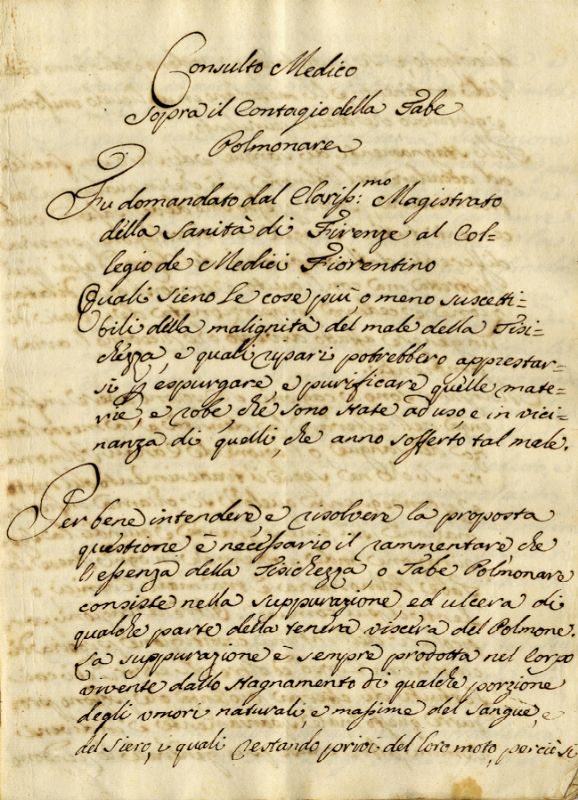 Consulto Medico
Sopra il Contagio della Tabe
Polmonare
Fu domandato dal Clariss:mo Magistrato
della Sanità di Firenze al Col-
legio de Medici Fiorentino
Quali sieno le cose più, o meno suscetti-
bili della malignità del male della Tisi-
chezza, e quali ripari potrebbero apprestar-
si p espurgare, e purificare quelle mate-
rie, e robe, che sono state ad uso, e in vici-
nanza di quelli, che anno sofferto tal male.
Per bene intendere, e risolvere la proposta
questione è necessario il rammentare che
l'essenza della Tisichezza, o Tabe Polmonare
consiste nella suppurazione, ed ulcera di
qualche parte della tenera viscera del Polmone.
La suppurazione è sempre prodotta nel Corpo
vivente dallo stagnamento di qualche porzione
degli umori naturali, e massime del Sangue, e
del Siero, i quali restando privi del loro moto, perciò si